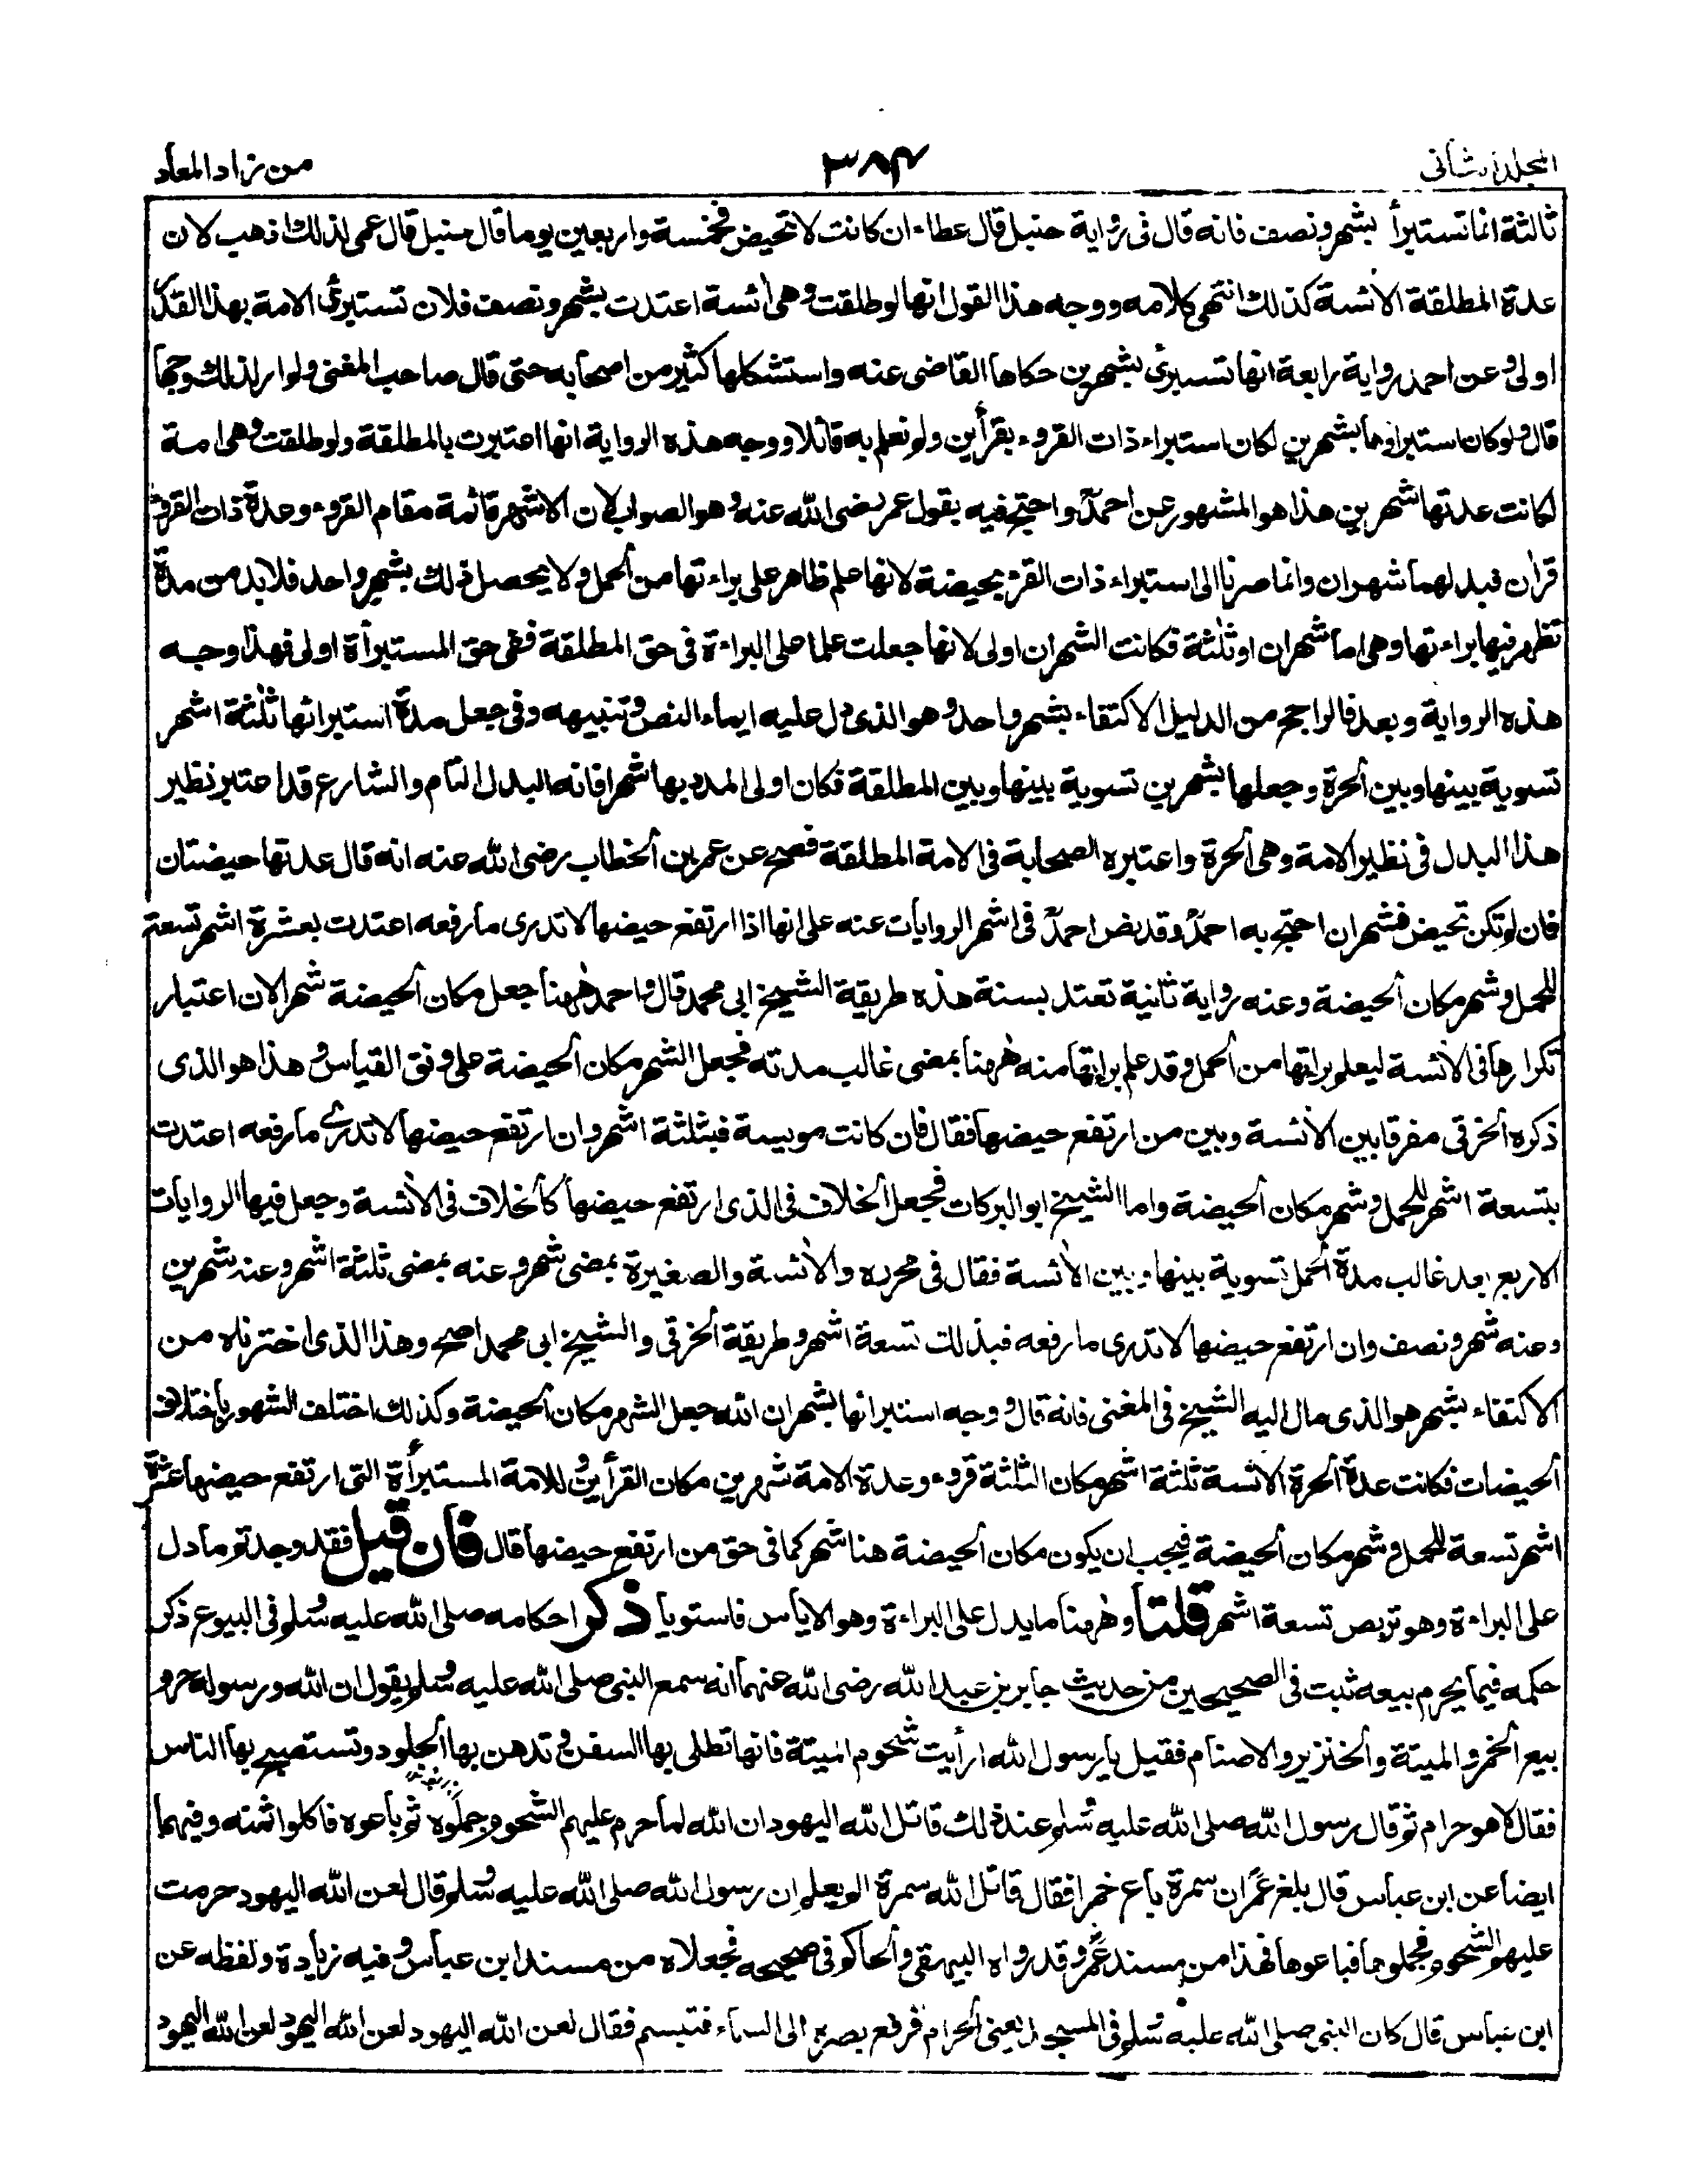 المجلد الثانى
٣٨٤
من زاد المعاد
ثالثة انما تستبرأ بشهر ونصف فانه قال فى رواية حنبل قال عطاء ان كانت لا تحيض فخمسة واربعين يوما قال حنبل قال عمى لذلك اذهب لان
عدة المطلقة الآئسة كذلك انتهى كلامه ووجه هذا القول انها لو طلقت وهى آئسة اعتدت بشهر ونصف فلان تستبرئ الامة بهذا القدر
اولى وعن احمد رواية رابعة انها تستبرئ بشهرين حكاها القاضى عنه واستشكلها كثير من اصحابه حتى قال صاحب المغنى ولم ار لذلك وجها
قال ولو كان استبراؤها بشهرين لكان استبراء ذات القروء بقرأين ولم نعلم به قائلا ووجه هذه الرواية انها اعتبرت بالمطلقة ولو طلقت وهى امة
لكانت عدتها شهرين هذا هو المشهور عن احمدؒ واحتج فيه بقول عمر رضى الله عنه وهو الصواب لان الاشهر قائمة مقام القروء وعدة ذات القروء
قرآن فبدلهما شهران وانما صرنا الى استبراء ذات القرء بحيضة لانها علم ظاهر على براءتها من الحمل ولا يحصل ذلك بشهر واحد فلابد من مدة
تظهر فيها براءتها وهى اما شهران او ثلثة فكانت الشهران اولى لانها جعلت علما على البراءة فى حق المطلقة ففى حق المستبرأة اولى فهذا وجه
هذه الرواية وبعد فالراجح من الدليل الاكتفاء بشهر واحد وهو الذى دل عليه ايماء النص وتنبيهه وفى جعل مدة استبرائها ثلثة اشهر
تسوية بينها وبين الحرة وجعلها بشهرين تسوية بينها وبين المطلقة فكان اولى المدد بها شهرا فانه البدل التام والشارع قد اعتبر نظير
هذا البدل فى نظير الامة وهى الحرة واعتبره الصحابة فى الامة المطلقة فصح عن عمر بن الخطاب رضى الله عنه انه قال عدتها حيضتان
فان لم تكن تحيض فشهران احتج به احمدؒ وقد نص احمدؒ فى اشهر الروايات عنه على انها اذا ارتفع حيضها لا تدرى ما رفعه اعتدت بعشرة اشهر تسعة
للحمل وشهر مكان الحيضة وعنه رواية ثانية تعتد بسنة هذه طريقة الشيخ ابى محمد قال واحمد ههنا جعل مكان الحيضة شهرا لان اعتبار
تكرارها فى الآئسة ليعلم براءتها من الحمل وقد علم براءتها منه ههنا بمضى غالب مدته فجعل الشهر مكان الحيضة على وفق القياس وهذا هو الذى
ذكره الخرقى مفرقا بين الآئسة وبين من ارتفع حيضها فقال فان كانت مويسة فبثلثة اشهر وان ارتفع حيضها لا تدرى ما رفعه اعتدت
بتسعة اشهر للحمل وشهر مكان الحيضة واما الشيخ ابو البركات فجعل الخلاف فى الذى ارتفع حيضها كالخلاف فى الآئسة وجعل فيها الروايات
الاربع بعد غالب مدة الحمل تسوية بينها وبين الآئسة فقال فى محرره والآئسة والصغيرة بمضى شهر وعنه بمضى ثلثة اشهر وعنه شهرين
وعنه شهر ونصف وان ارتفع حيضها لا تدرى ما رفعه فبذلك تسعة اشهر وطريقة الخرقى والشيخ ابى محمد اصح وهذا الذى اخترناه من
الاكتفاء بشهر هو الذى مال اليه الشيخ فى المغنى فانه قال ووجه استبرائها بشهر ان الله جعل الشهر مكان الحيضة وكذلك اختلف الشهور باختلاف
الحيضات فكانت عدة الحرة الآئسة ثلثة اشهر مكان الثلثة قروء وعدة الامة شهرين مكان القرأين وللامة المستبرأة التى ارتفع حيضها عشرة
اشهر تسعة للحمل وشهر مكان الحيضة فيجب ان يكون مكان الحيضة هنا شهر كما فى حق من ارتفع حيضها قال فان قيل فقد وجدتم ما دل
على البراءة وهو تربص تسعة اشهر قلنا وههنا ما يدل على البراءة وهو الاياس فاستويا ذكر احكامه صلى الله عليه وسلم فى البيوع ذكر
حكمه فيما يحرم بيعه ثبت فى الصحيحين من حديث جابر بن عبد الله رضى الله عنهما انه سمع النبى صلى الله عليه وسلم يقول ان الله ورسوله حرم
بيع الخمر والميتة والخنزير والاصنام فقيل يا رسول الله ارأيت شحوم الميتة فانها تطلى بها السفن وتدهن بها الجلود وتستصبح بها الناس
فقال لا هو حرام ثم قال رسول الله صلى الله عليه وسلم عند ذلك قاتل الله اليهود ان الله لما حرم عليهم الشحوم جملوه ثم باعوه فاكلوا ثمنه وفيهما
ايضا عن ابن عباس قال بلغ عمر ان سمرة باع خمرا فقال قاتل الله سمرة الم يعلم ان رسول الله صلى الله عليه وسلم قال لعن الله اليهود حرمت
عليهم الشحوم فجملوها فباعوها فهذا من مسند عمر وقد رواه البيهقى والحاكم فى صحيحه فجعلاه من مسند ابن عباس وفيه زيادة ولفظه عن
ابن عباس قال كان النبى صلى الله عليه وسلم فى المسجد يعنى الحرام فرفع بصره الى السماء فتبسم فقال لعن الله اليهود لعن الله اليهود لعن الله اليهود